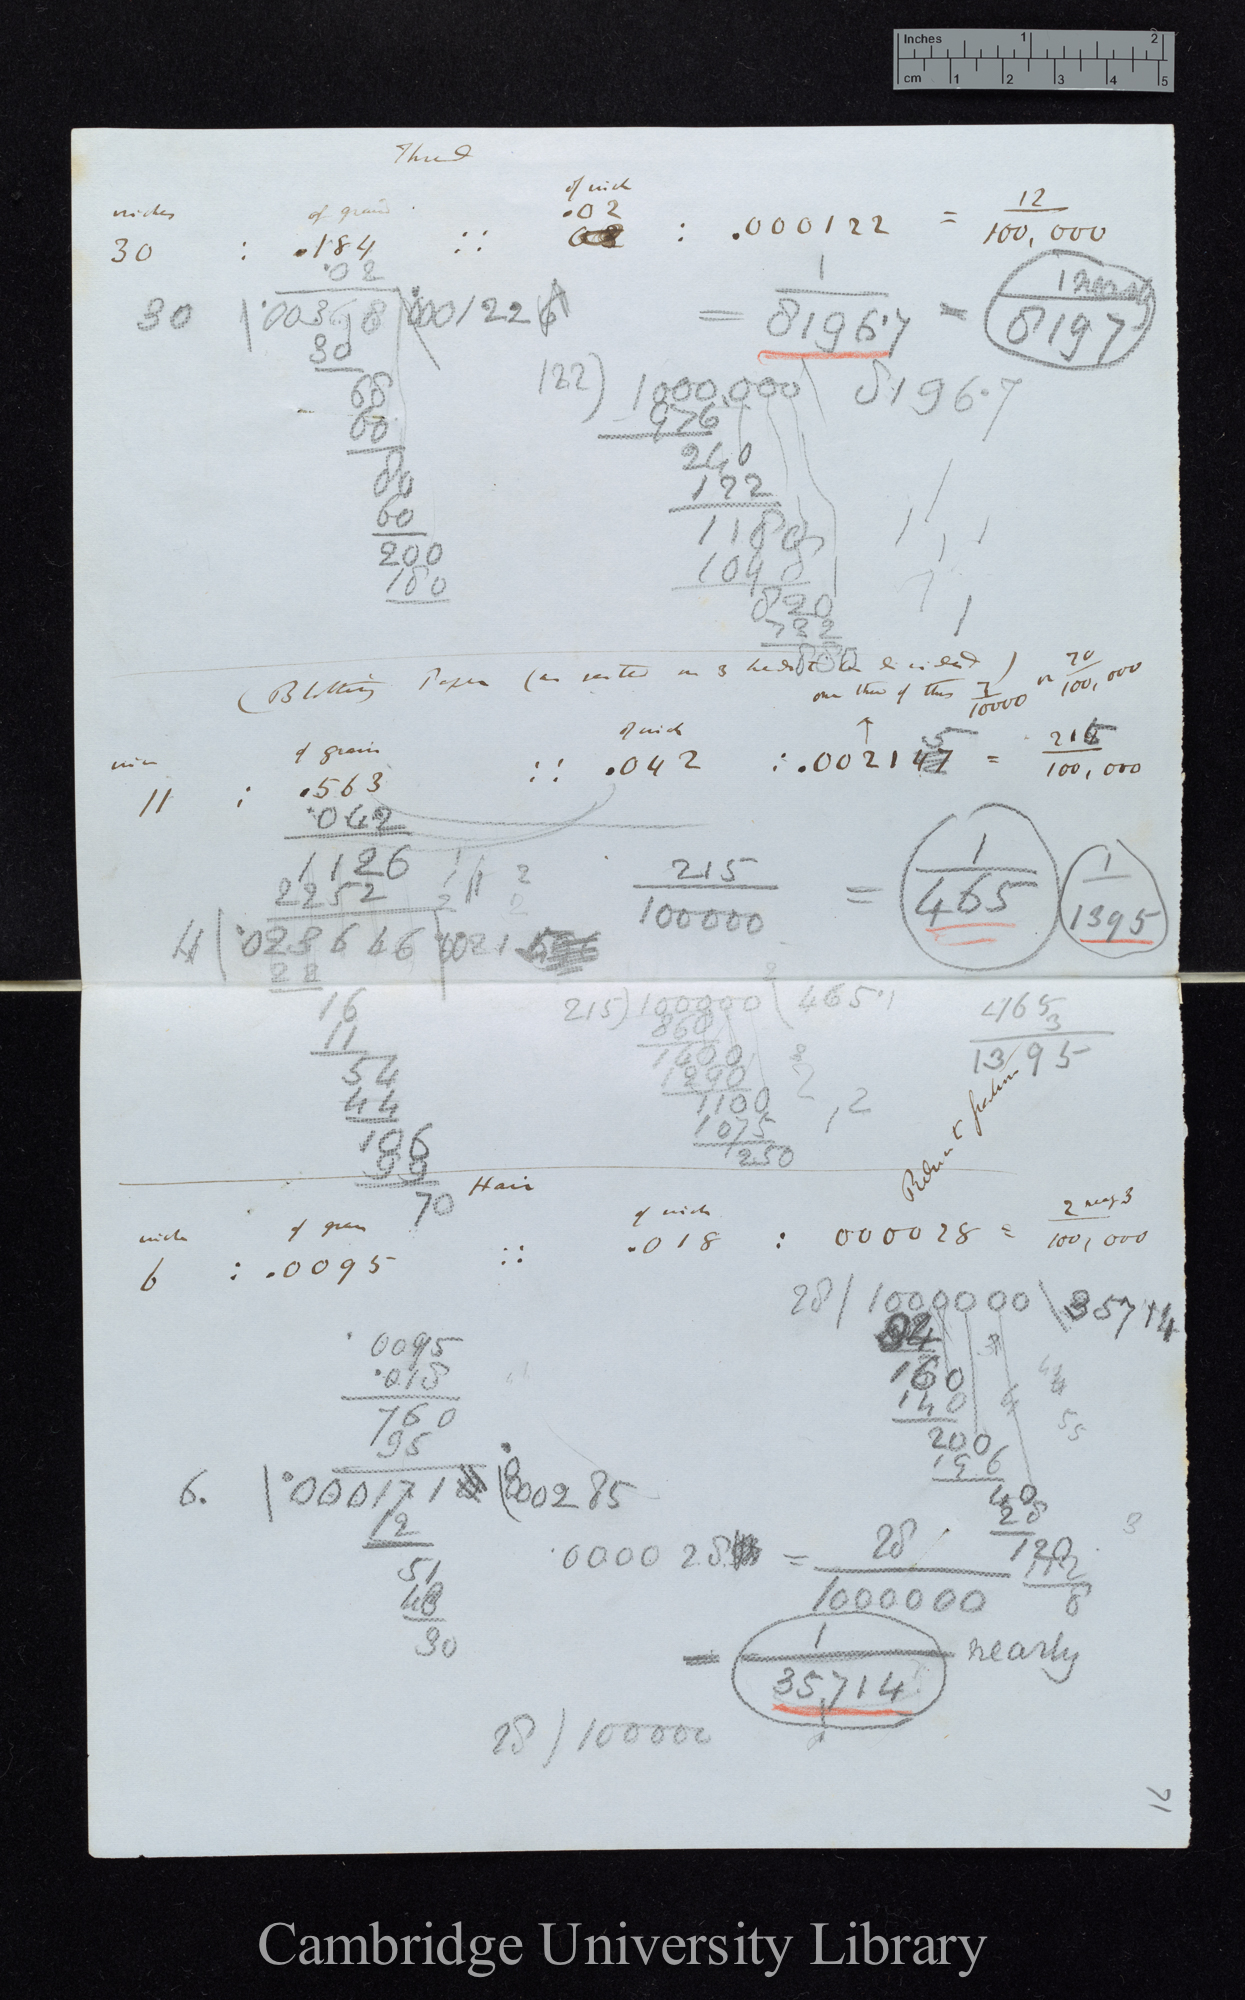 Inches 1 2
cm 1 2 3 4 5
Thread
inches of grain of inch
30 : .184 :: .02 : .000122 = 12/100,000
.02
30 |.00368 (.000122
30
68
60
80
60
200
180
= 1/8196.7 = 1 nearly/8197
122) 1000,000 8196.7
976
240
122
1180
1098
820
732
880
(Blotting Paper (as rested on 3 heads to be divided)
one third of this 7/10000 or 70/100,000
inch of grain of inch
11 : .563 :: .042 : .002145 = 215/100,000
.042
1126
2252
11 |.023646 |.0021
22
16
11
54
44
106
99
70
215/100000 = 1/465 1/1395
215) 100000 ( 465.1
860
1400
1290
1100
1075
250
465
3
1395
Reduce to fraction
Hair
inch of grain of inch
6 : .0095 :: .018 : 000028 = 2 nearly 3/100,000
.0095
.018
760
95
6. |.0001710 (.000285
12
51
48
30
28 / 1000000 \ 35714
84
160
140
200
196
40
28
120
112
8
.000028 = 28/1000000
= 1/35714 nearly
28 ) 100000
71
Cambridge University Library